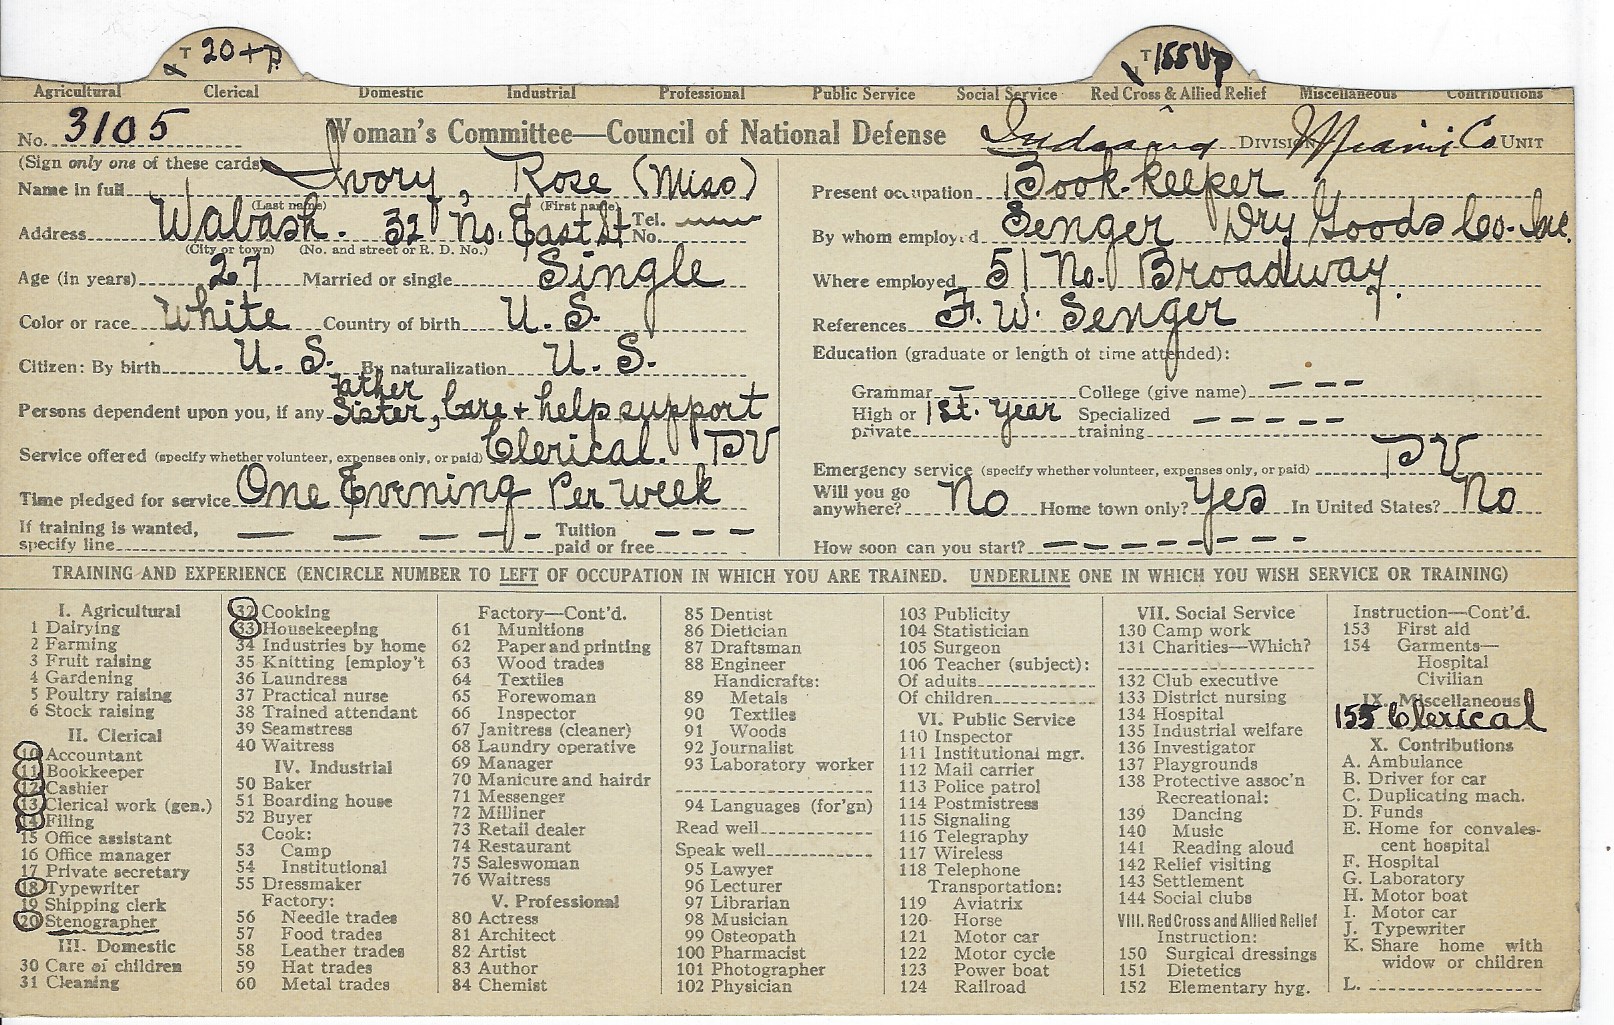 T 20+P.
T 155 Vp
Agricultural Clerical Domestic Industrial Professional Public Service Social Service Red Cross & Allied Relief Miscellaneous Contributions
No. 3105 Woman's Committee—Council of National Defense Indiana DIVISION Miami Co UNIT
(Sign only one of these cards)
Name in full Ivory, Rose (Miss)
(Last name) (First name)
Address Wabash. 321 No. East St Tel. No.
(City or town) (No. and street or R. D. No.)
Age (in years) 27 Married or single Single
Color or race White Country of birth U. S.
Citizen: By birth U. S. By naturalization U. S.
Father
Persons dependent upon you, if any Sister, Care + help support
Service offered (specify whether volunteer, expenses only, or paid) Clerical. PV
Time pledged for service One Evening Per Week
If training is wanted, specify line — — — — - Tuition paid or free - - - -
Present occupation Book-keeper
By whom employed Senger Dry Goods Co. Inc.
Where employed 51 No. Broadway.
References F. W. Senger
Education (graduate or length of time attended):
Grammar — College (give name) - - - -
High or private 1st. year Specialized training - - - - -
Emergency service (specify whether volunteer, expenses only, or paid) PV
Will you go anywhere? No Home town only? Yes In United States? No
How soon can you start? - - - - - - - -
TRAINING AND EXPERIENCE (ENCIRCLE NUMBER TO LEFT OF OCCUPATION IN WHICH YOU ARE TRAINED. UNDERLINE ONE IN WHICH YOU WISH SERVICE OR TRAINING)
I. Agricultural
1 Dairying
2 Farming
3 Fruit raising
4 Gardening
5 Poultry raising
6 Stock raising
II. Clerical
10 Accountant
11 Bookkeeper
12 Cashier
13 Clerical work (gen.)
14 Filing
15 Office assistant
16 Office manager
17 Private secretary
18 Typewriter
19 Shipping clerk
20 Stenographer
III. Domestic
30 Care of children
31 Cleaning
32 Cooking
33 Housekeeping
34 Industries by home
35 Knitting [employ't
36 Laundress
37 Practical nurse
38 Trained attendant
39 Seamstress
40 Waitress
IV. Industrial
50 Baker
51 Boarding house
52 Buyer
Cook:
53 Camp
54 Institutional
55 Dressmaker
Factory:
56 Needle trades
57 Food trades
58 Leather trades
59 Hat trades
60 Metal trades
Factory—Cont'd.
61 Munitions
62 Paper and printing
63 Wood trades
64 Textiles
65 Forewoman
66 Inspector
67 Janitress (cleaner)
68 Laundry operative
69 Manager
70 Manicure and hairdr
71 Messenger
72 Milliner
73 Retail dealer
74 Restaurant
75 Saleswoman
76 Waitress
V. Professional
80 Actress
81 Architect
82 Artist
83 Author
84 Chemist
85 Dentist
86 Dietician
87 Draftsman
88 Engineer
Handicrafts:
89 Metals
90 Textiles
91 Woods
92 Journalist
93 Laboratory worker
94 Languages (for'gn)
Read well
Speak well
95 Lawyer
96 Lecturer
97 Librarian
98 Musician
99 Osteopath
100 Pharmacist
101 Photographer
102 Physician
103 Publicity
104 Statistician
105 Surgeon
106 Teacher (subject):
Of adults
Of children
VI. Public Service
110 Inspector
111 Institutional mgr.
112 Mail carrier
113 Police patrol
114 Postmistress
115 Signaling
116 Telegraphy
117 Wireless
118 Telephone
Transportation:
119 Aviatrix
120 Horse
121 Motor car
122 Motor cycle
123 Power boat
124 Railroad
VII. Social Service
130 Camp work
131 Charities—Which?
132 Club executive
133 District nursing
134 Hospital
135 Industrial welfare
136 Investigator
137 Playgrounds
138 Protective assoc'n
Recreational:
139 Dancing
140 Music
141 Reading aloud
142 Relief visiting
143 Settlement
144 Social clubs
VIII. Red Cross and Allied Relief
Instruction:
150 Surgical dressings
151 Dietetics
152 Elementary hyg.
Instruction—Cont'd.
153 First aid
154 Garments—
Hospital
Civilian
IX. Miscellaneous
155 Clerical
X. Contributions
A. Ambulance
B. Driver for car
C. Duplicating mach.
D. Funds
E. Home for convales-
cent hospital
F. Hospital
G. Laboratory
H. Motor boat
I. Motor car
J. Typewriter
K. Share home with
widow or children
L.